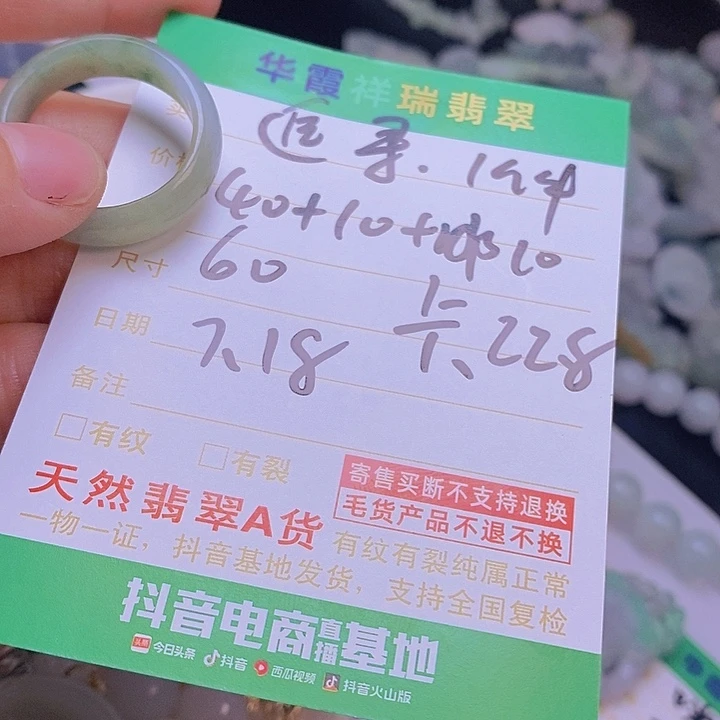 华霞祥瑞翡翠
买
价格
40+10+邮10
尺寸 60
日期 7.18 1.228
备注
□有纹 □有裂
天然翡翠A货
寄售买断不支持退换
毛货产品不退不换
有纹有裂纯属正常
一物一证，抖音基地发货，支持全国复检
抖音电商直播基地
头条 今日头条 抖音 西瓜视频 抖音火山版